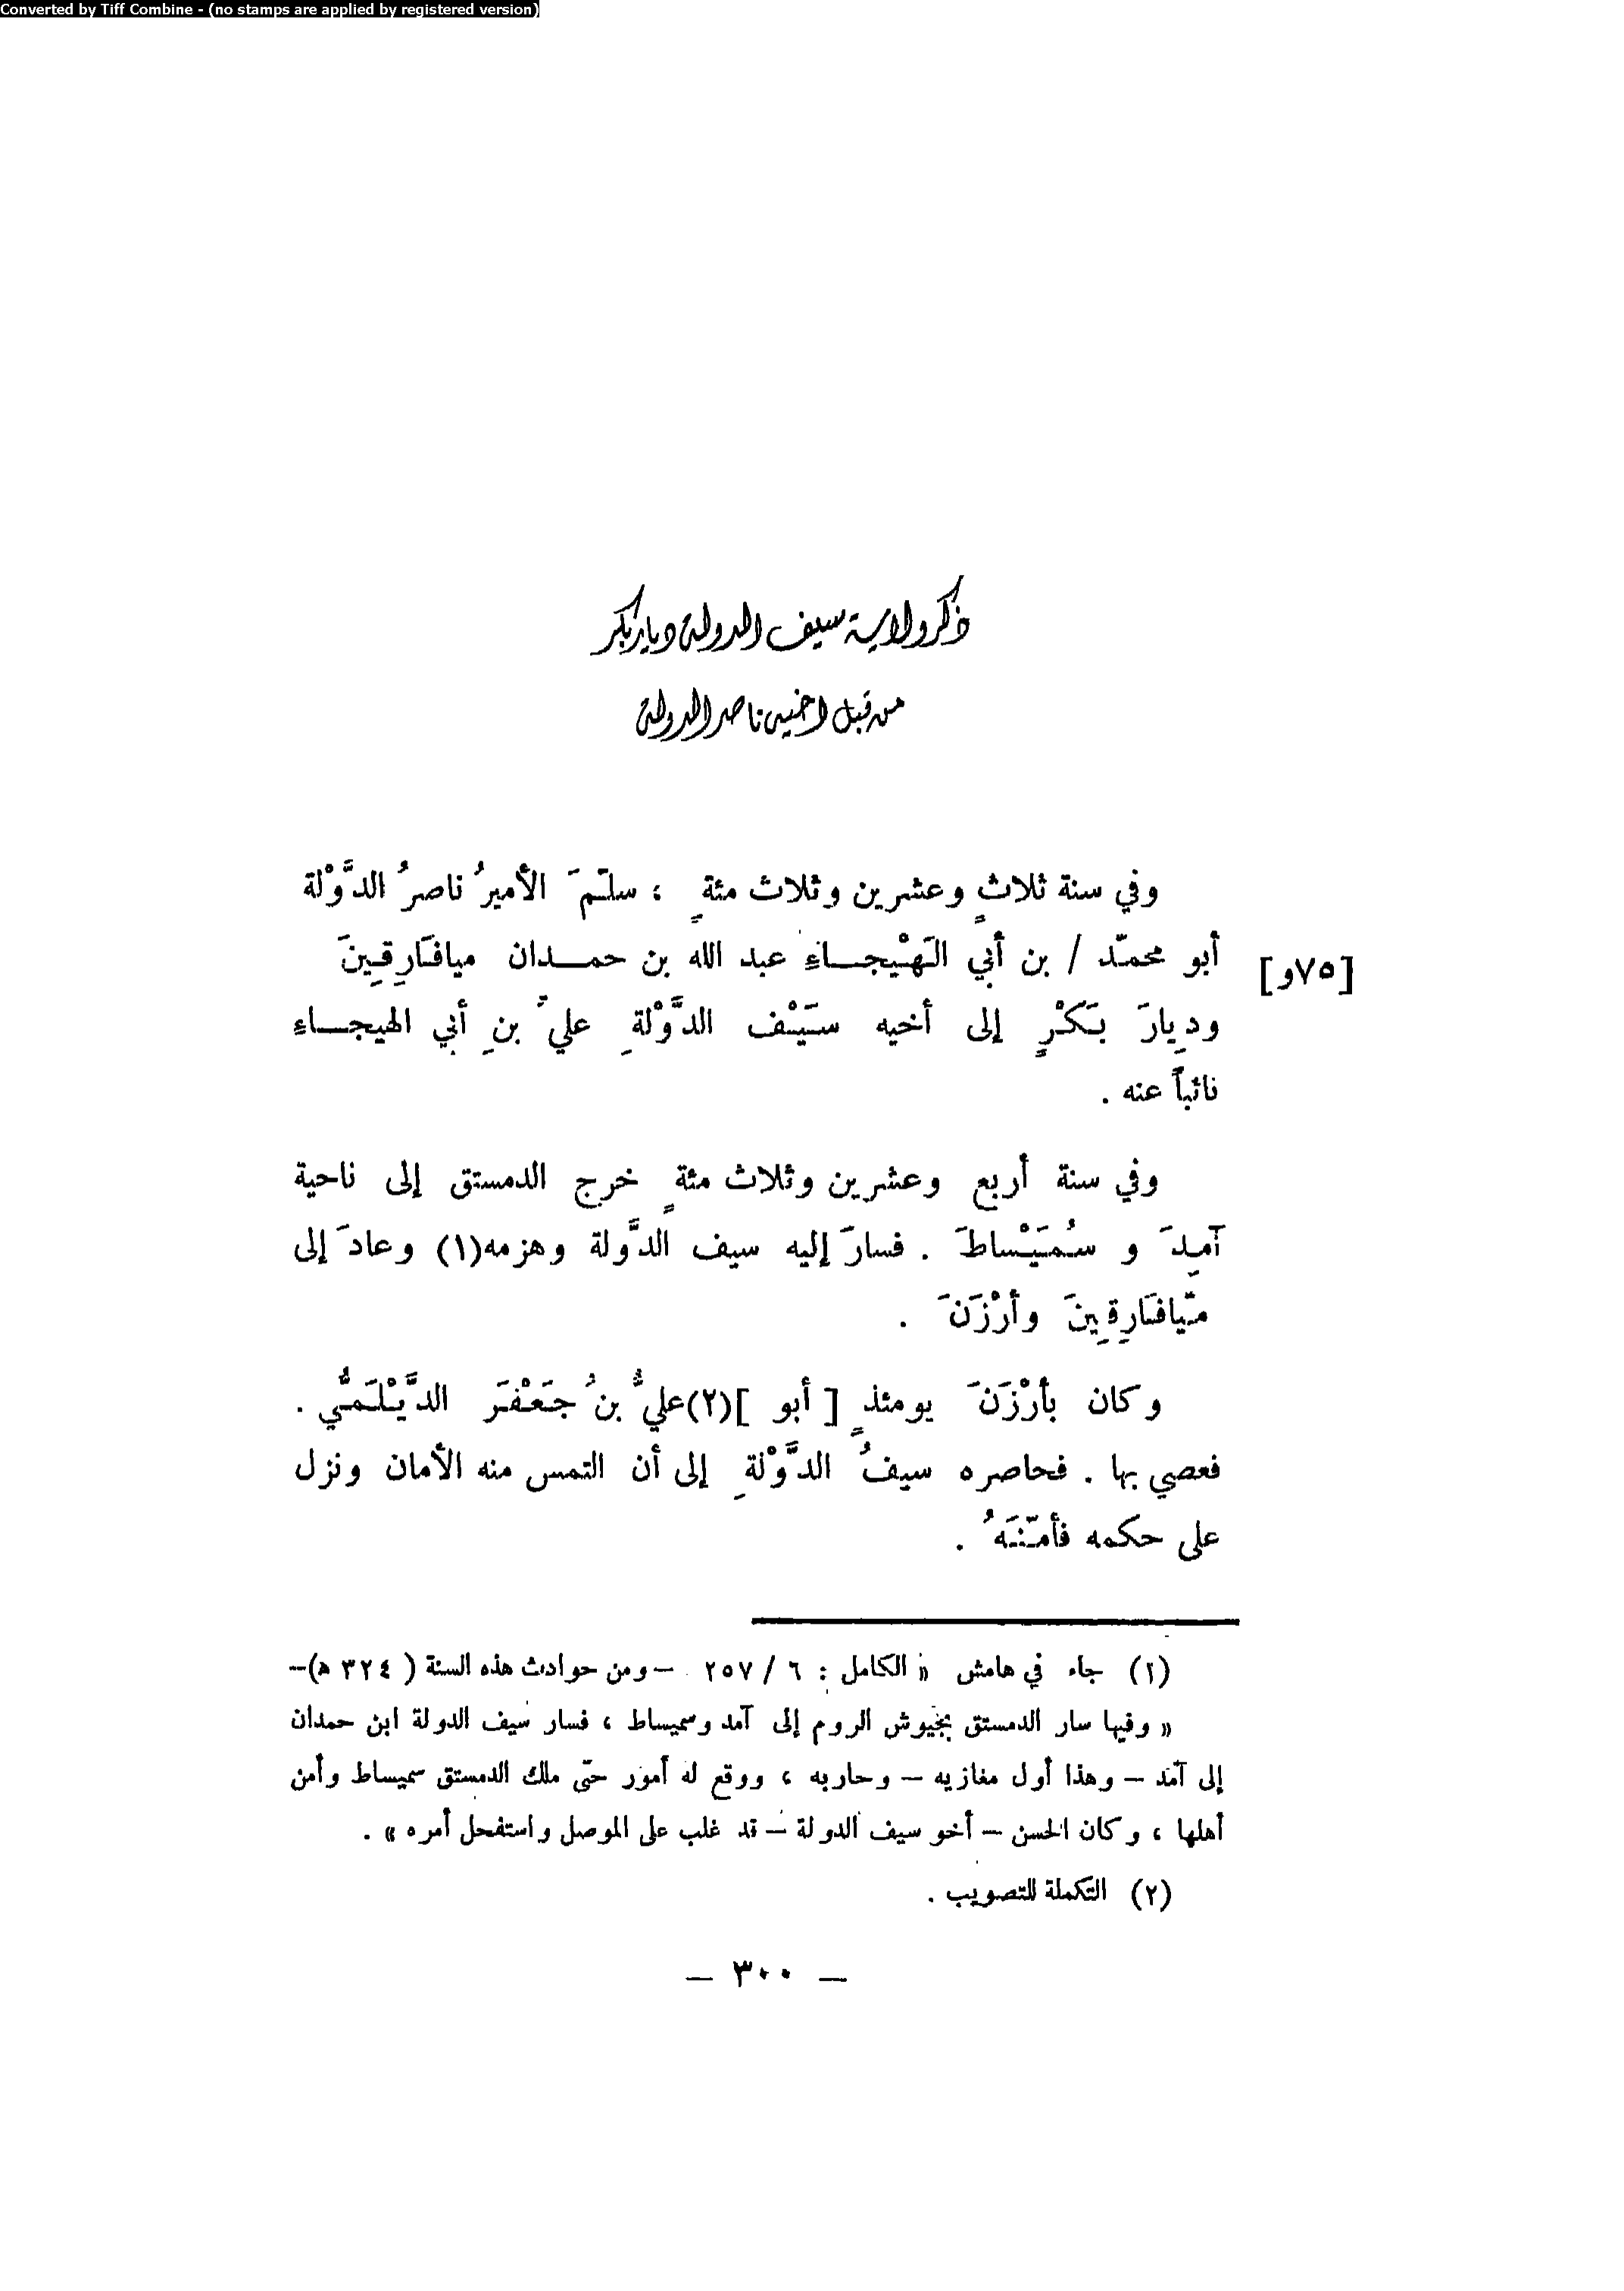 Converted by Tiff Combine - (no stamps are applied by registered version)
ذكر ولاية سيف الدولة ديار بكر
من قبل اخيه ناصر الدولة
وفي سنة ثلاثٍ وعشرين وثلاث مئةٍ ، سلّمَ الأميرُ ناصرُ الدَّوْلة
أبو محمّد / بن أبي الهَيْجاءِ عبد الله بن حمدان ميافَارِقِينَ
[٧٥و]
ودِيارَ بَكْرٍ إلى أخيه سَيْف الدَّوْلةِ عليّ بنِ أبي الهيجاءِ
نائباً عنه .
وفي سنة أربع وعشرين وثلاث مئةٍ خرج الدمستق إلى ناحية
آمِدَ و سُمَيْساطَ . فسارَ إليه سيف الدَّولة وهزمه(١) وعادَ إلى
ميّافَارِقِينَ وأرْزَنَ .
وكان بأرْزَنَ يومئذٍ [ أبو ](٢)عليُّ بنُ جَعْفَرَ الدَّيْلَمُّي .
فعصي بها . فحاصره سيفُ الدَّوْلةِ إلى أن التمس منه الأمان ونزل
على حكمه فأمّنَهُ .
(١) جاء في هامش « الكامل : ٦ / ٢٥٧ – ومن حوادث هذه السنة ( ٣٢٤ ه)–
« وفيها سار الدمستق بجيوش الروم إلى آمد وسميساط ، فسار سيف الدولة ابن حمدان
إلى آمد – وهذا أول مغازيه – وحاربه ، ووقع له أمور حتّى ملك الدمستق سميساط وأمن
أهلها ، وكان الحسن – أخو سيف الدولة – قد غلب على الموصل واستفحل أمره » .
(٢) التكملة للتصويب .
– ٣٠٠ –